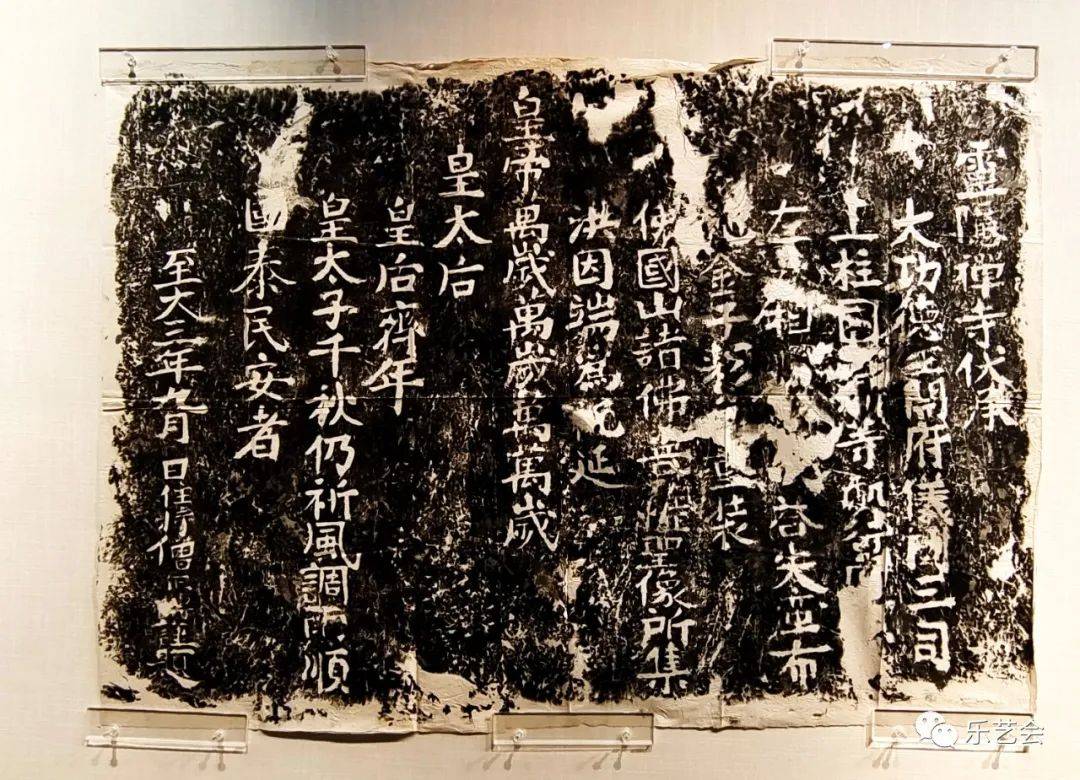 靈隱禪寺伏承
大功德主開府儀同三司
上柱國
左丞相
金子彩
佛國山諸佛菩薩聖像所集
洪因端為祝延
皇帝萬歲萬歲萬萬歲
皇太后
皇后齊年
皇太子千秋仍祈風調雨順
國泰民安者
至大三年九月 日住持僧
乐艺会